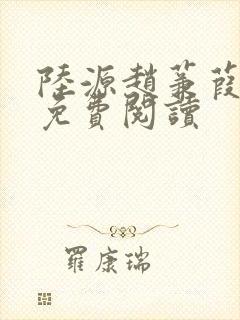 陸源趙蒹葭
免費閱讀
羅康瑞